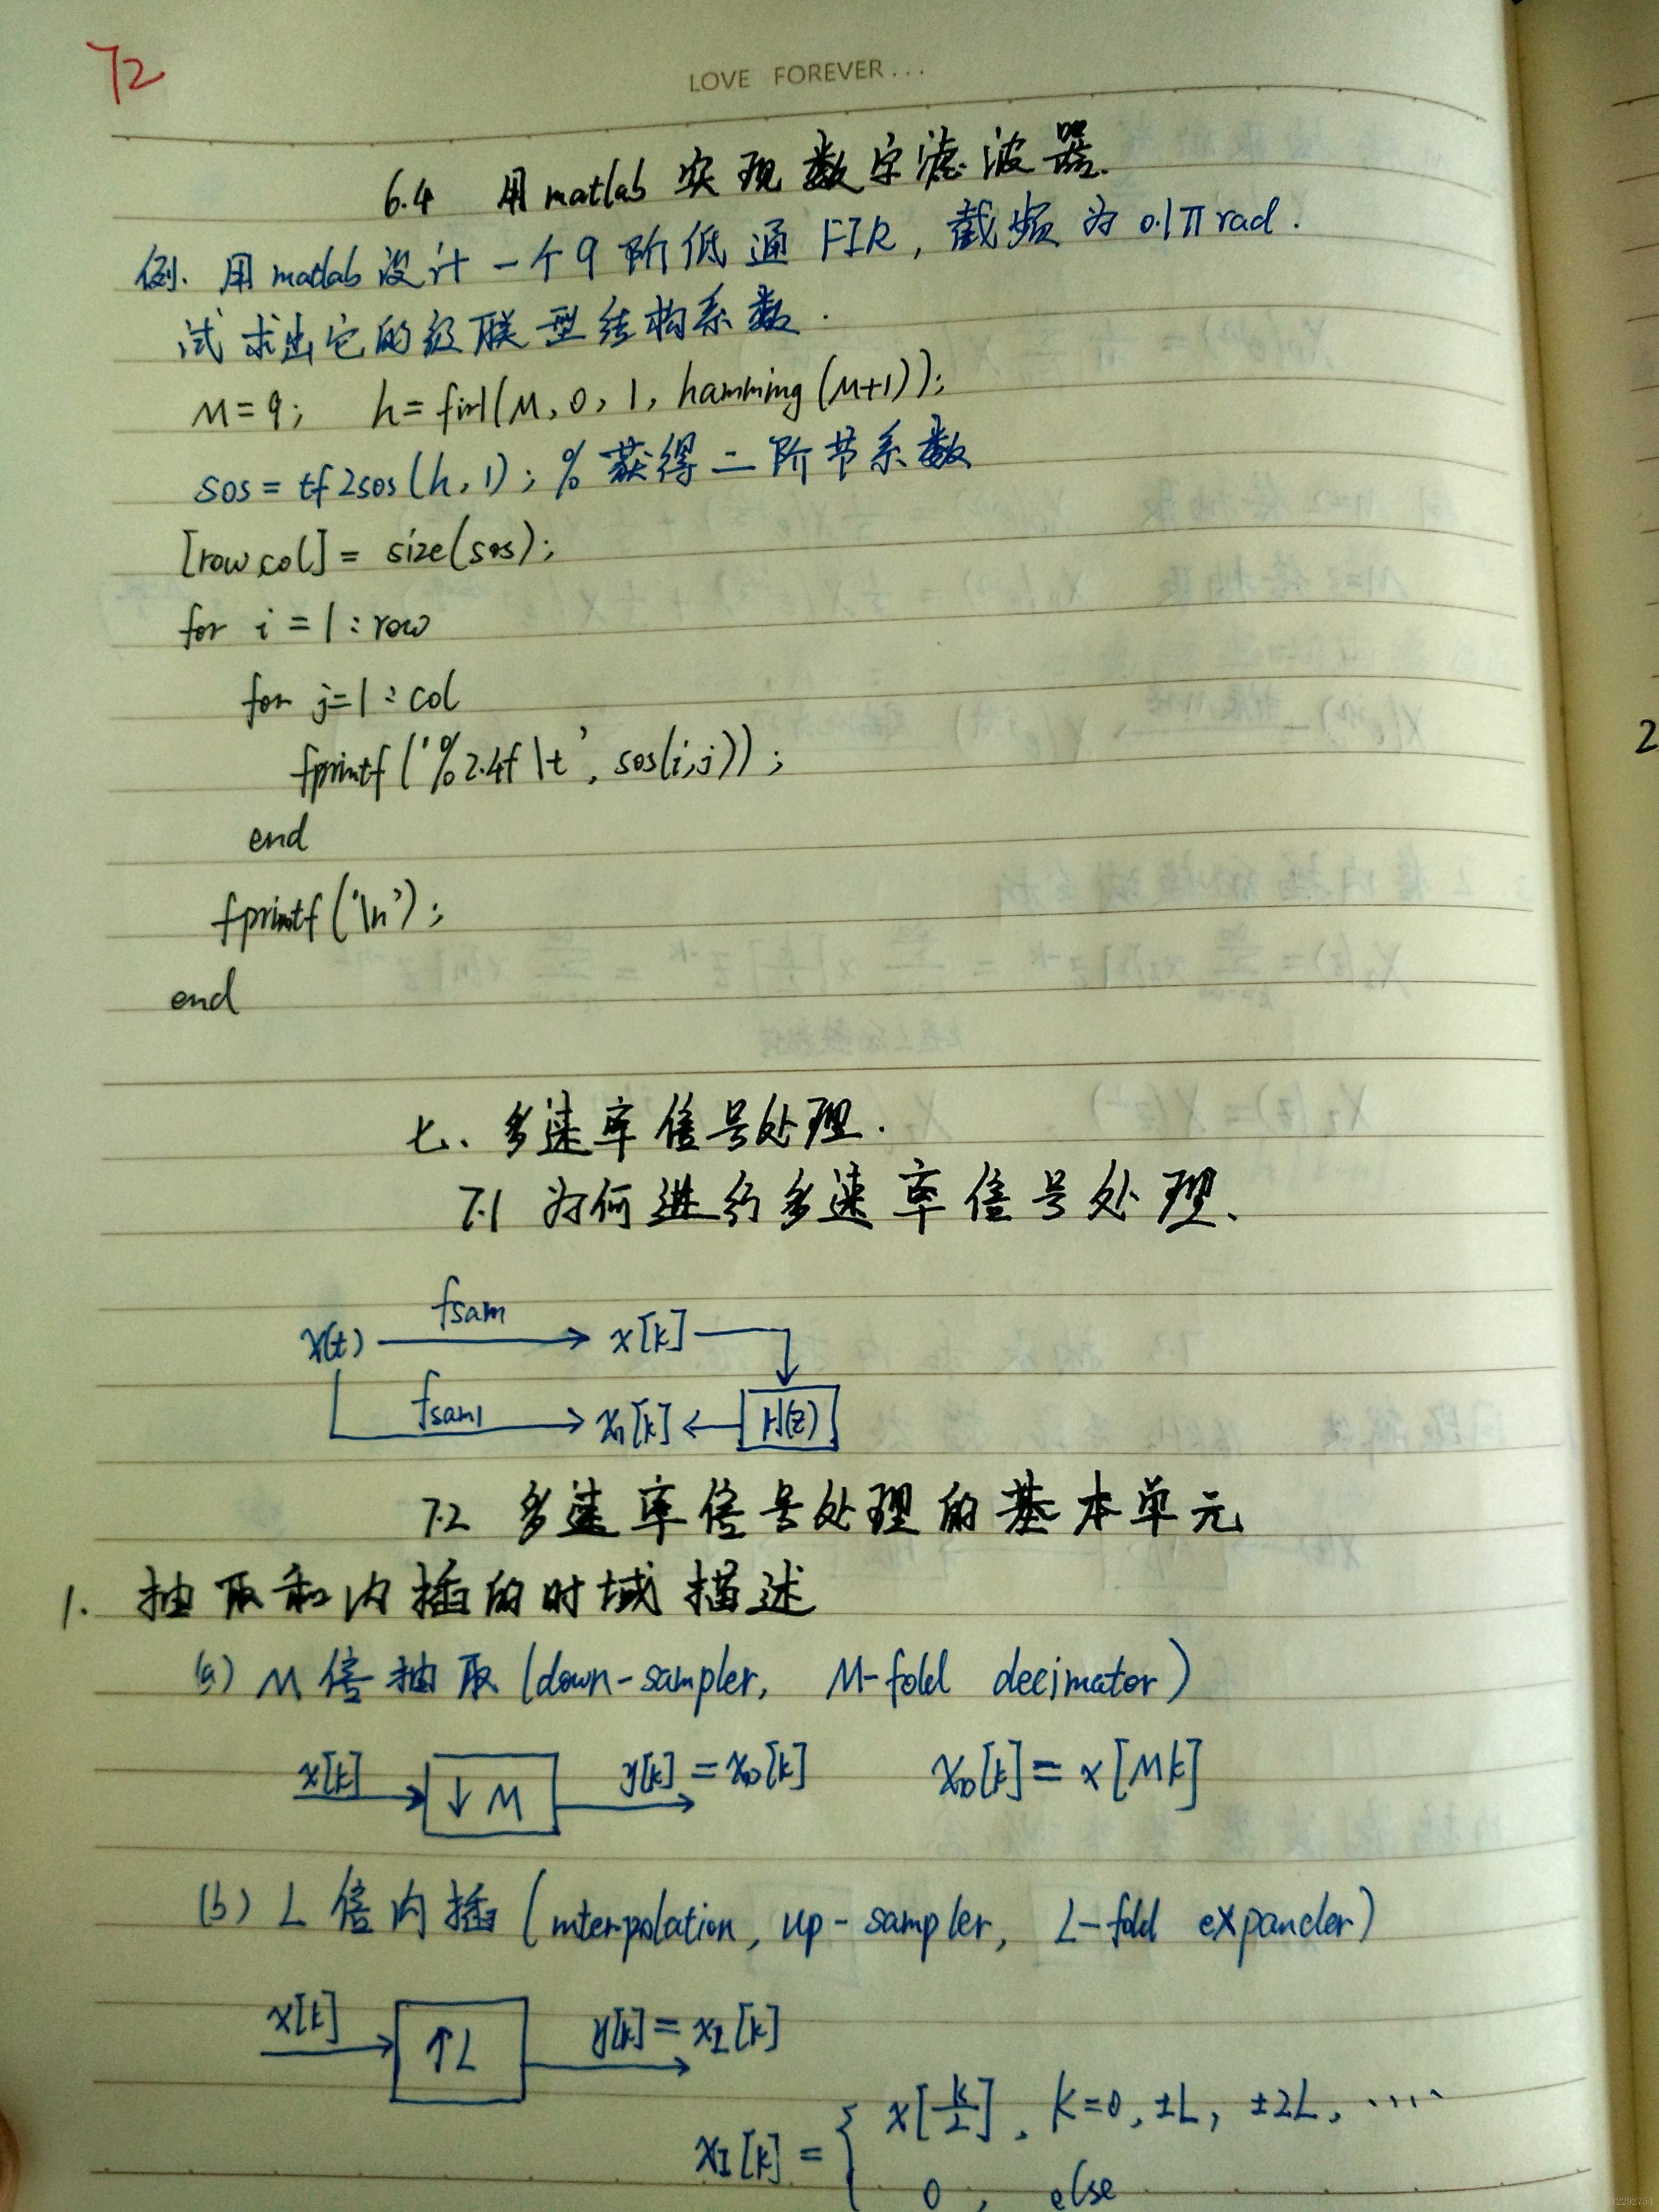 72
LOVE FOREVER...
6.4 用matlab实现数字滤波器.
例. 用matlab设计一个9阶低通FIR, 截频为0.1π rad.
试求出它的级联型结构系数.
M=9; h=fir1(M, 0, 1, hamming(M+1));
sos=tf2sos(h,1); %获得二阶节系数
[row,col]=size(sos);
for i=1:row
for j=1:col
fprintf('%2.4f\t', sos(i,j));
end
fprintf('\n');
end
七、多速率信号处理.
7.1 为何进行多速率信号处理、
fsam
x(t) → x[k]
fsam1
x1[k] ← H(z)
7.2 多速率信号处理的基本单元
1. 抽取和内插的时域描述
(a) M倍抽取(down-sampler, M-fold decimator)
x[k] → ↓M → y[k]=xD[k] xD[k]=x[Mk]
(b) L倍内插(interpolation, up-sampler, L-fold expander)
x[k] → ↑L → y[k]=xI[k]
xI[k]={ x[k/L], k=0, ±L, ±2L, ....
0, else
2
12292754